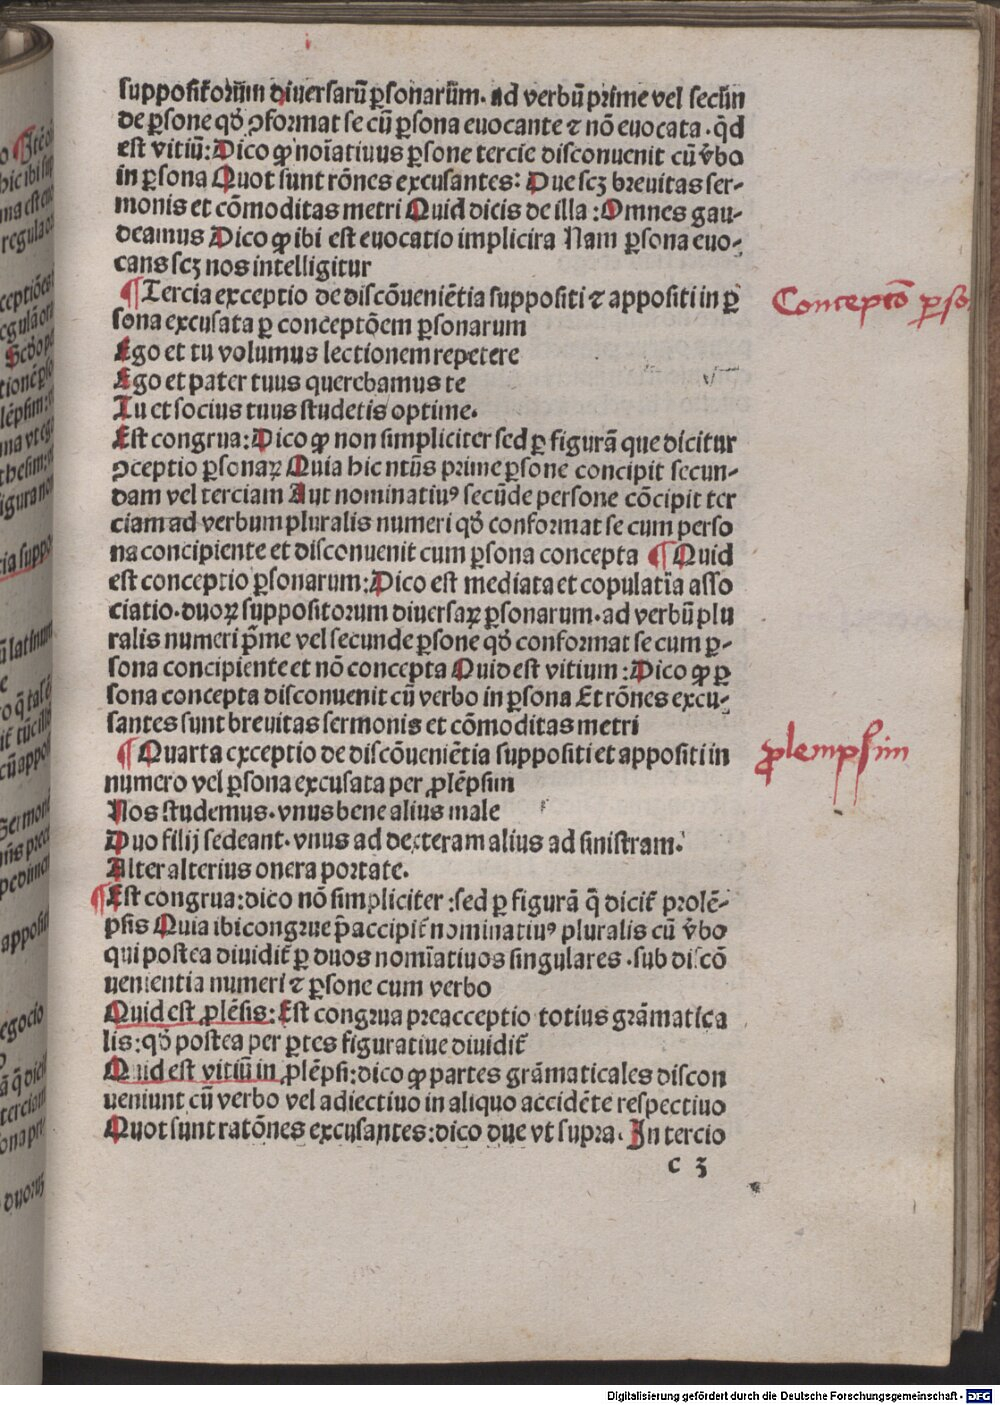 suppositoꝝ̄m diuersarū ꝑsonarūm. ad verbū prime vel secūn
de ꝑsone qđ ꝯformat se cū ꝑsona euocante ⁊ nō euocata . qd̄
est vitiū: Dico ꝙ noīatiuus ꝑsone tercie disconuenit cū v̄bo
in ꝑsona Quot sunt rōnes excusantes: Due scꝫ breuitas ser-
monis et cōmoditas metri Quid dicis de illa : Omnes gau-
deamus Dico ꝙ ibi est euocatio implicira Nam ꝑsona euo-
cans scꝫ nos intelligitur
¶ Tercia exceptio de discōueniētia suppositi ⁊ appositi in ꝑ
sona excusata ꝑ conceptōem ꝑsonarum
Ego et tu volumus lectionem repetere
Ego et pater tuus querebamus te
Tu et socius tuus studetis optime.
Est congrua: Dico ꝙ non simpliciter sed ꝑ figurā que dicitur
ꝯceptio ꝑsonaꝝ Quia hic ntūs prime ꝑsone concipit secun-
dam vel terciam Aut nominatiuꝰ secūde persone cōcipit ter
ciam ad verbum pluralis numeri qđ conformat se cum perso
na concipiente et disconuenit cum ꝑsona concepta ¶ Quid
est conceptio ꝑsonarum: Dico est mediata et copulatīa asso
ciatio. duoꝝ suppositorum diuersaꝝ ꝑsonarum. ad verbū plu
ralis numeri p̄me vel secunde ꝑsone qđ conformat se cum ꝑ-
sona concipiente et nō concepta Quid est vitium : Dico ꝙ ꝑ
sona concepta disconuenit cū verbo in ꝑsona Et rōnes excu-
santes sunt breuitas sermonis et cōmoditas metri
¶ Quarta exceptio de discōueniētia suppositi et appositi in
numero vel ꝑsona excusata per ꝓlēpsim
Nos studemus. vnus bene alius male
Duo filij sedeant. vnus ad decteram alius ad sinistram.
Alter alterius onera portate.
¶ Est congrua: dico nō simpliciter : sed ꝑ figurā q̄ dicit̄ prolē-
psis Quia ibi congrue p̄accipit̄ nominatiuꝰ pluralis cū v̄bo
qui postea diuidit̄ ꝑ duos nomīatiuos singulares . sub discō
uenientia numeri ⁊ ꝑsone cum verbo
Quid est ꝓlēsis: Est congrua preacceptio totius grāmatica
lis: qđ postea per ꝑtes figuratiue diuidit̄
Quid est vitiū in ꝓlēpsi: dico ꝙ partes grāmaticales discon
ueniunt cū verbo vel adiectiuo in aliquo accidēte respectiuo
Quot sunt ratōnes excusantes: dico due vt supra. In tercio
c 3
Conceptō ꝑso
ꝓlempsim
Digitalisierung gefördert durch die Deutsche Forschungsgemeinschaft - DFG